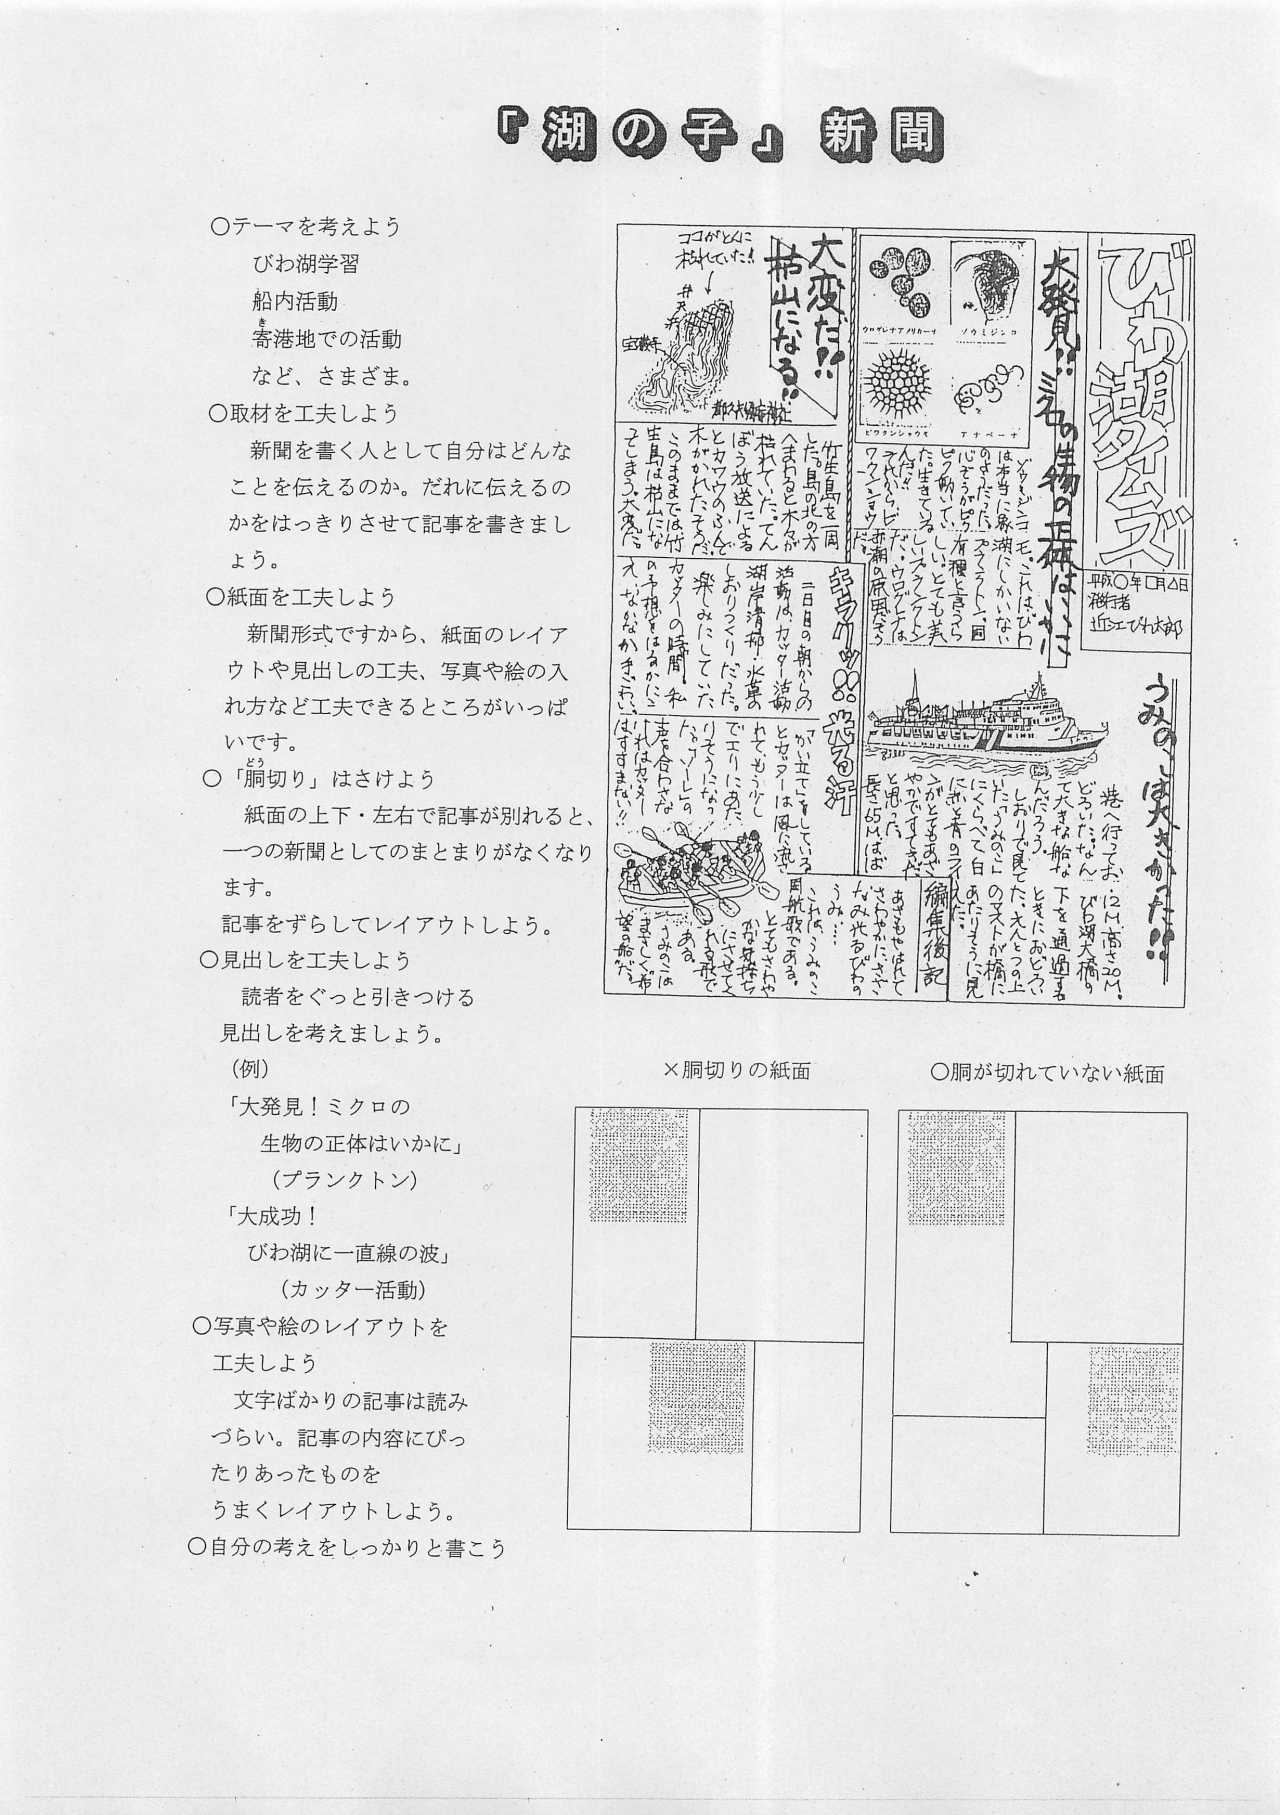 『湖の子』新聞
〇テーマを考えよう
びわ湖学習
船内活動
き
寄港地での活動
など、さまざま。
〇取材を工夫しよう
新聞を書く人として自分はどんな
ことを伝えるのか。だれに伝えるの
かをはっきりさせて記事を書きまし
ょう。
〇紙面を工夫しよう
新聞形式ですから、紙面のレイア
ウトや見出しの工夫、写真や絵の入
れ方など工夫できるところがいっぱ
いです。
どう
〇「胴切り」はさけよう
紙面の上下・左右で記事が別れると、
一つの新聞としてのまとまりがなくなり
ます。
記事をずらしてレイアウトしよう。
〇見出しを工夫しよう
読者をぐっと引きつける
見出しを考えましょう。
（例）
「大発見！ミクロの
生物の正体はいかに」
（プランクトン）
「大成功！
びわ湖に一直線の波」
（カッター活動）
〇写真や絵のレイアウトを
工夫しよう
文字ばかりの記事は読み
づらい。記事の内容にぴっ
たりあったものを
うまくレイアウトしよう。
〇自分の考えをしっかりと書こう
びわ湖タイムズ
平成〇年□月△日
発行者
近江びわ太郎
大発見!!ミクロの生物の正体はいかに
ウログレナアメリカーナ
ゾウミジンコ
ビワクンショウモ
アナベーナ
ゾウミジンコ
は本当に象
のようだった。
心ぞうがピク
ピク動いてい
た。生きている
んだ!!
それからビ
ワクンショウ
モ。これはびわ
湖にしかいない
プランクトン。固
有種と言うら
しい。とても美
しいプランクトン
だ。ウログレナは
赤潮の原因だそう
だ。
大変だ!!
枯山になる!!
ココがとくに
枯れていた!!
宝厳寺
竹生島を一周
した。島の北の方
へまわると木々が
枯れていた。てん
ぼう放送による
とカワウのふんで
木がかれたそうだ。
このままでは竹
生島は枯山にな
ってしまう。大変だ。
キラクッ!!光る汗
二日目の朝からの
活動は、カッター活動
湖岸清掃・水草の
しおりづくりだった。
楽しみにしていた
カッターの時間。私
の予想をはるかにこ
え、なかなかきびしい。
「かい立て」をしている
とカッターは風に流さ
れて、もう少し
でエリにあた
りそうになっ
た。「ソーレ」の
声を合わさな
ければカッター
はすすまない!!
うみのこは大きかった!!
港へ行ってお
どろいた。なん
て大きな船な
んだろう。
しおりで見て
いた「うみのこ」
にくらべて、白
に青のライン
がとてもあざ
やかですてきだ
と思った。
長さ65Mはば
12M。高さ20M。
びわ湖大橋の
下を通過する
ときにおどろい
た。えんとつの上
のマストが橋に
あたりそうに見
えた。
編集後記
あさもやはれて
さわやかにさざ
なみ光るびわの
うみ…
これは、うみのこ
周航歌である。
とてもさわや
かな気持ち
にさせてく
れる歌で
ある。
うみのこは
まさしく「希
望の船」だ。
×胴切りの紙面
〇胴が切れていない紙面